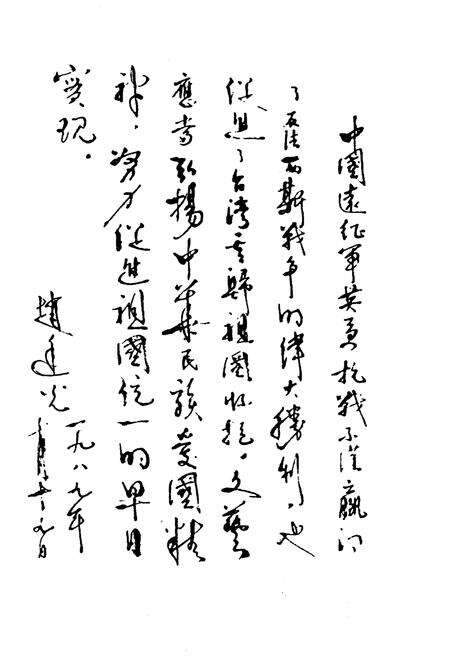 中國遠征軍英勇抗戰不僅贏得
了反法西斯戰爭的偉大勝利，也
促進了台灣歸祖國懷抱。文藝
應當弘揚中華民族愛國精
神，努力促進祖國統一的早日
實現。
趙廷光
一九八九年